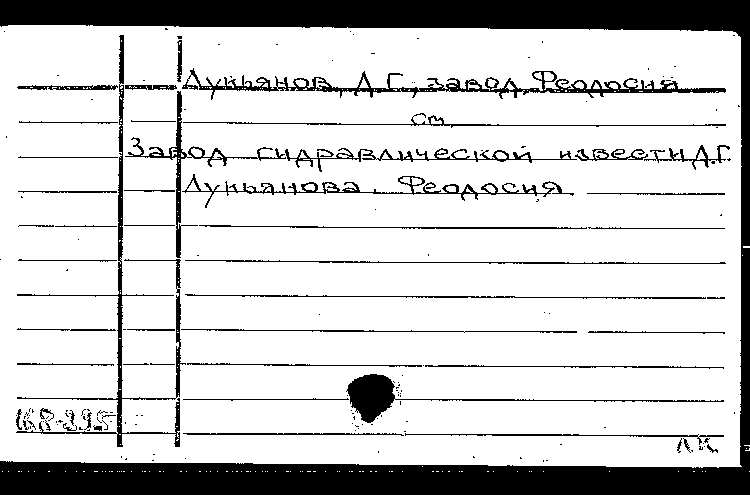 Лукьянов, Д.Г., завод, Феодосия
см.
Завод гидравлической извести Д.Г.
Лукьянова. Феодосия.
168-395